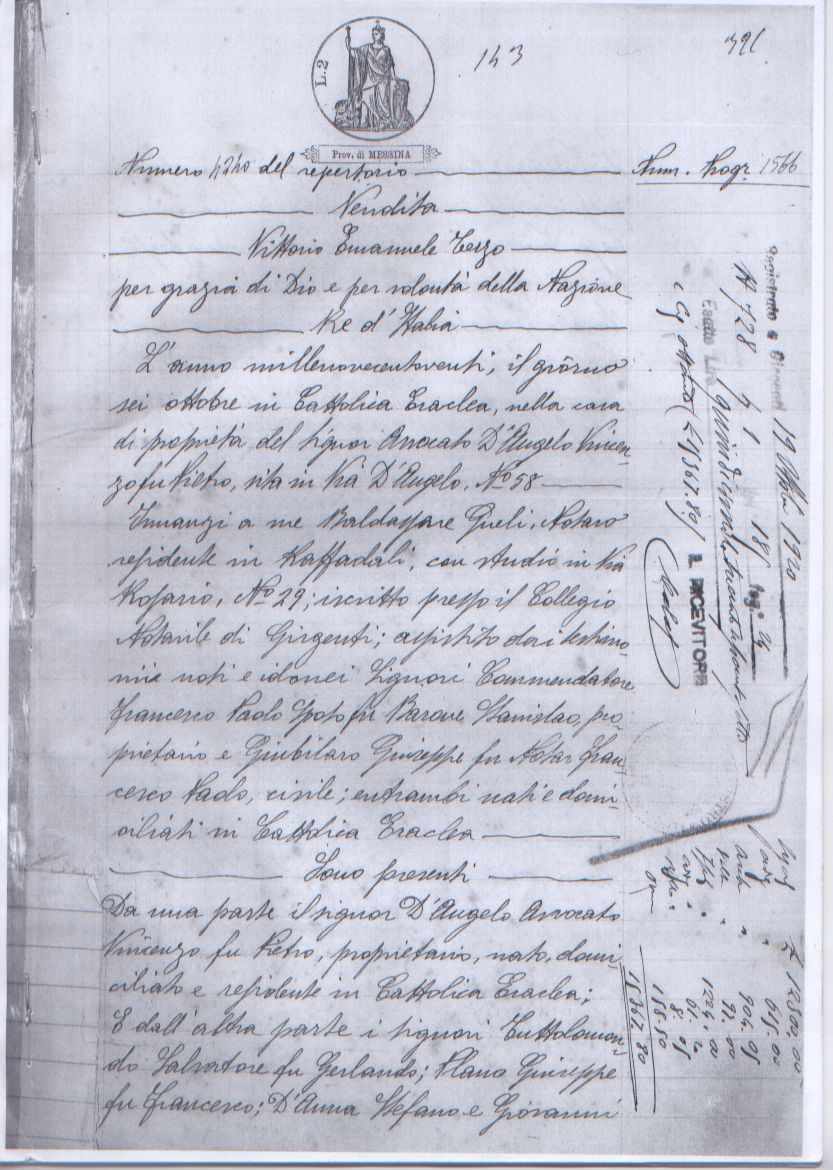 L. 2
143
391
Prov. di MESSINA
Numero 4240 del repertorio
Num. Progr. 1566
Vendita
Vittorio Emanuele Terzo
per grazia di Dio e per volontà della Nazione
Re d'Italia
L'anno millenovecentoventi, il giorno
sei ottobre in Cattolica Eraclea, nella casa
di proprietà del signor Avvocato D'Angelo Vincen-
zo fu Pietro, sita in Via D'Angelo, No 58
Innanzi a me Baldassare Gueli, Notaro
residente in Raffadali, con studio in Via
Rosario, No 29; iscritto presso il Collegio
Notarile di Girgenti; assistito dai testimo-
nii noti e idonei Signori Commendatore
Francesco Paolo Spoto fu Barone Stanislao, pro-
prietario e Giubilaro Giuseppe fu Notar Fran-
cesco Paolo, civile; entrambi nati e domi-
ciliati in Cattolica Eraclea
Sono presenti
Da una parte il signor D'Angelo Avvocato
Vincenzo fu Pietro, proprietario, nato, domi-
ciliato e residente in Cattolica Eraclea;
E dall'altra parte i signori Tuttolomon-
do Salvatore fu Gerlando; Plano Giuseppe
fu Francesco; D'Anna Stefano e Giovanni
Registrato a Girgenti 19 Ottobre 1920
N 728
fog. 24
Esatte Lire
(£ 15367.80)
IL RICEVITORE
15367.80